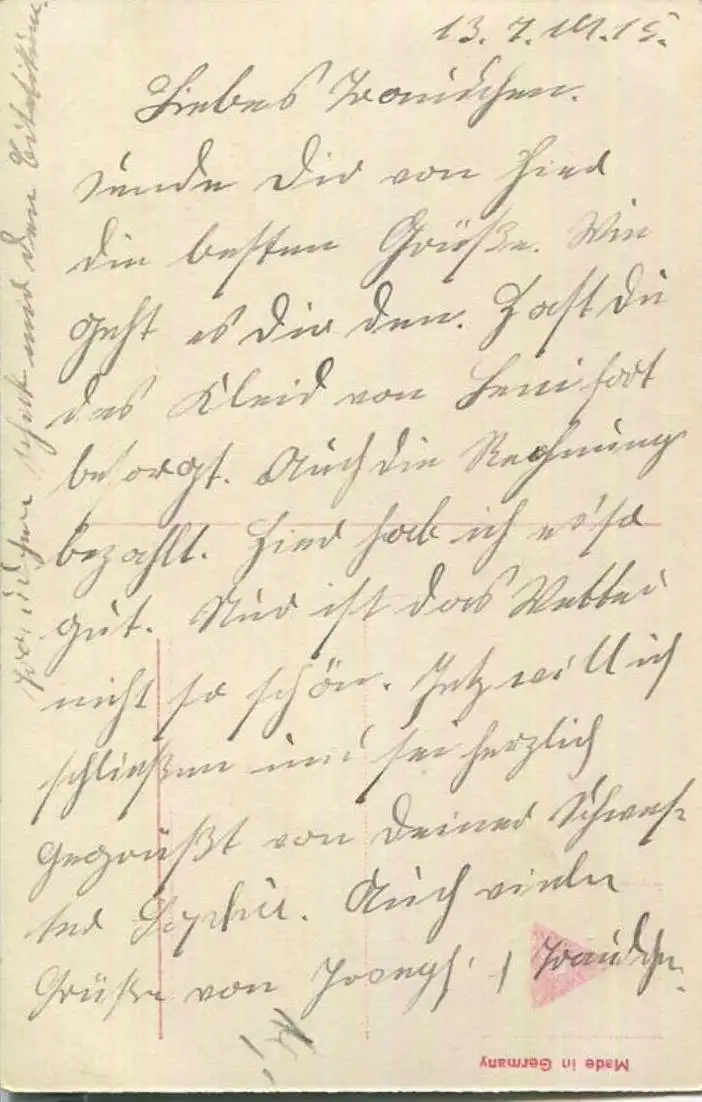 13. 7. 1915.
Liebes Traudchen.
sende Dir von hier
die besten Grüße. Wie
geht es dir den. Hast du
das Kleid von Leni fort
besorgt. Auch die Rechnung
bezahlt. Hier hab ich es so
gut. Nur ist das Wetter
nicht so schön. Jetz will ich
schließen und sei herzlich
gegrüßt von deiner Schwes-
ter Sophie. Auch viele
Grüße von Joseph, Traudche
und den
Made in Germany